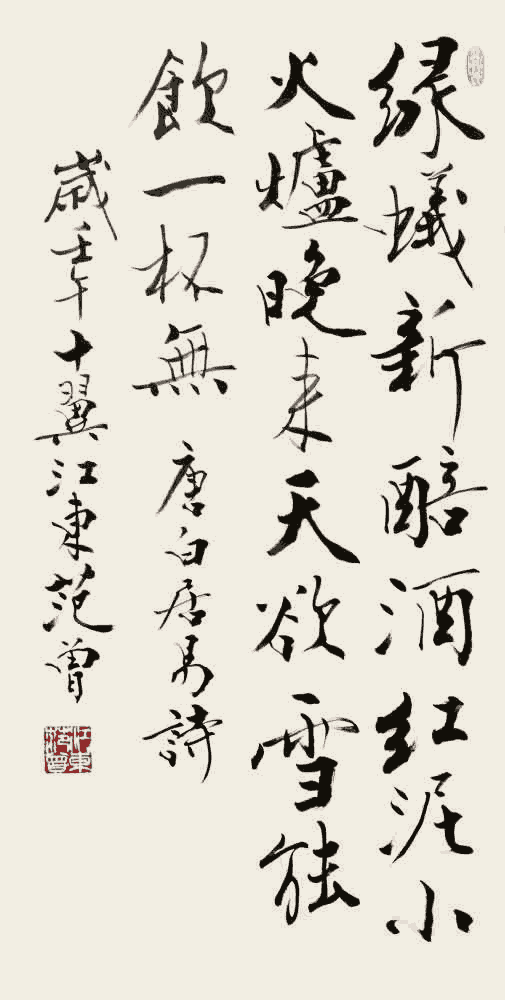 緑蟻新醅酒紅泥小
火爐晚来天欲雪能
飲一杯無
唐白居易詩
歲壬午十翼江東范曾
江東范曾